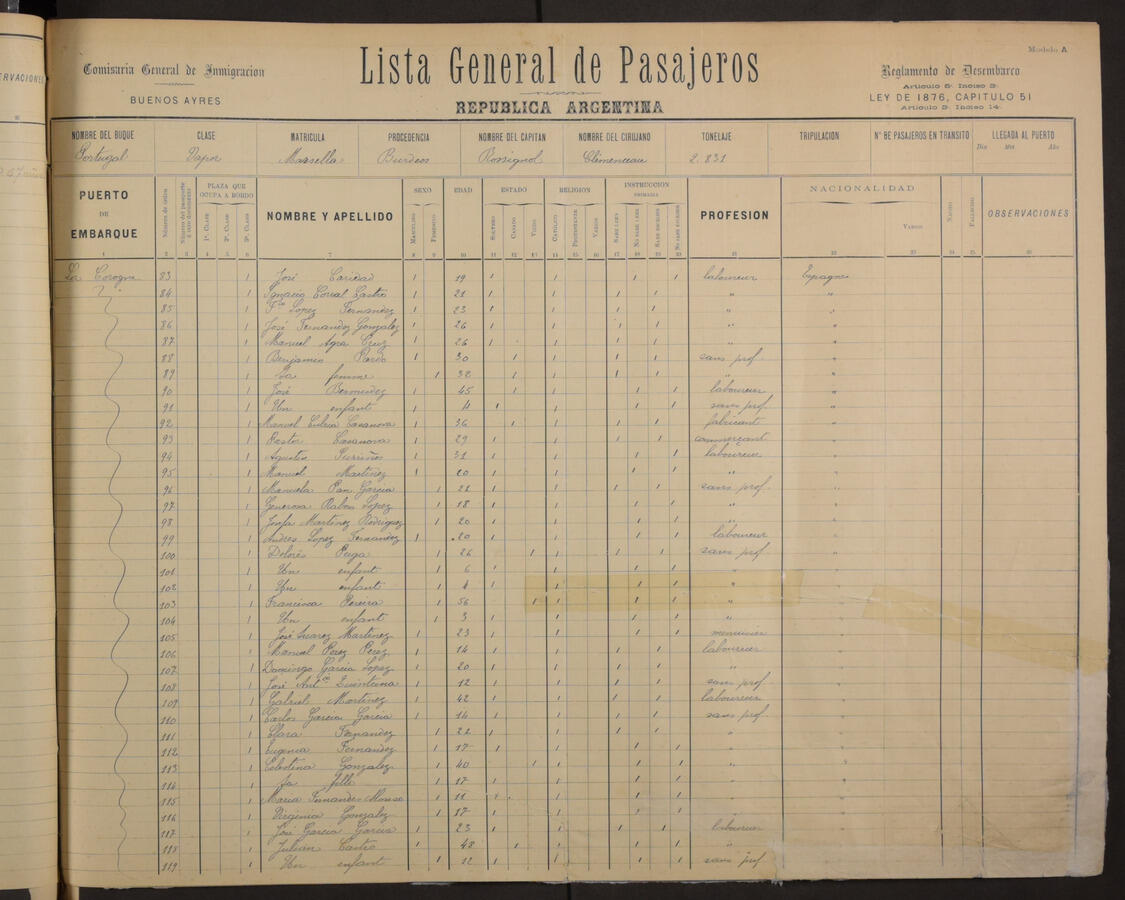 RVACIONES
Modelo A
Comisaria General de Inmigracion
BUENOS AYRES
Lista General de Pasajeros
REPUBLICA ARGENTINA
Reglamento de Desembarco
Articulo 5º Inciso 3º
LEY DE 1876, CAPITULO 51
Articulo 3º Inciso 14º
NOMBRE DEL BUQUE CLASE MATRICULA PROCEDENCIA NOMBRE DEL CAPITAN NOMBRE DEL CIRUJANO TONELAJE TRIPULACION Nº BE PASAJEROS EN TRANSITO LLEGADA AL PUERTO
Dia Mes Año
Portugal Vapor Marsella Burdeos Rossignol Clémenceau 2.831
PUERTO DE EMBARQUE Número de orden PLAZA QUE OCUPA A BORDO 1ª CLASE 2ª CLASE 3ª CLASE NOMBRE Y APELLIDO SEXO MASCULINO FEMENINO EDAD ESTADO SOLTERO CASADO VIUDO RELIGION CATOLICO PROTESTANTE VARIOS INSTRUCCION PRIMARIA SABE LEER NO SABE LEER SABE ESCRIBIR NO SABE ESCRIBIR PROFESION NACIONALIDAD VARIOS NACIDO FALLECIDO OBSERVACIONES
1 2 3 4 5 6 7 8 9 10 11 12 13 14 15 16 17 18 19 20 21 22 23 24 25 26
La Corogne 83 1 José Caridad 1 19 1 1 1 1 laboureur Espagne
" 84 1 Ignacio Corral Castro 1 21 1 1 1 1 " "
85 1 Fco Lopez Fernandez 1 23 1 1 1 1 " "
86 1 José Fernandez Gonzalez 1 26 1 1 1 1 " "
87 1 Manuel Agra Cruz 1 26 1 1 1 1 " "
88 1 Benjamin Pardo 1 30 1 1 1 1 sans prof. "
89 1 Sa femme 1 32 1 1 1 1 " "
90 1 José Bermudez 1 45 1 1 1 1 laboureur "
91 1 Un enfant 1 4 1 1 1 1 sans prof. "
92 1 Manuel Casanova 1 36 1 1 1 1 fabricant "
93 1 Pastor Casanova 1 29 1 1 1 1 commerçant "
94 1 Agustin 1 31 1 1 1 1 laboureur "
95 1 Manuel Martinez 1 20 1 1 1 1 " "
96 1 Manuela Pan Garcia 1 21 1 1 1 1 sans prof. "
97 1 Generosa Lopez 1 18 1 1 1 1 " "
98 1 Josefa Martinez Rodriguez 1 20 1 1 1 1 " "
99 1 Andres Lopez Fernandez 1 20 1 1 1 1 laboureur "
100 1 Dolorés 1 26 1 1 1 1 sans prof. "
101 1 Un enfant 1 6 1 1 1 1 " "
102 1 Un enfant 1 4 1 1 1 1 " "
103 1 Francisca Pereira 1 56 1 1 1 1 " "
104 1 Un enfant 1 3 1 1 1 1 " "
105 1 José Suarez Martinez 1 23 1 1 1 1 menuisier "
106 1 Manuel Perez Perez 1 14 1 1 1 1 laboureur "
107 1 Domingo Garcia Lopez 1 20 1 1 1 1 " "
108 1 José Antº Quintana 1 12 1 1 1 1 sans prof. "
109 1 Gabriel Martinez 1 42 1 1 1 1 laboureur "
110 1 Carlos Garcia Garcia 1 14 1 1 1 1 sans prof. "
111 1 Clara Fernandez 1 22 1 1 1 1 " "
112 1 Eugenia Fernandez 1 17 1 1 1 1 " "
113 1 Celestina Gonzalez 1 40 1 1 1 1 " "
114 1 Sa fille 1 17 1 1 1 1 " "
115 1 Maria Fernandes 1 11 1 1 1 1 " "
116 1 Virginia Gonzalez 1 17 1 1 1 1 " "
117 1 José Garcia Garcia 1 23 1 1 1 1 laboureur "
118 1 Julian Castro 1 48 1 1 1 1 " "
119 1 Un enfant 1 12 1 1 1 1 sans prof. "